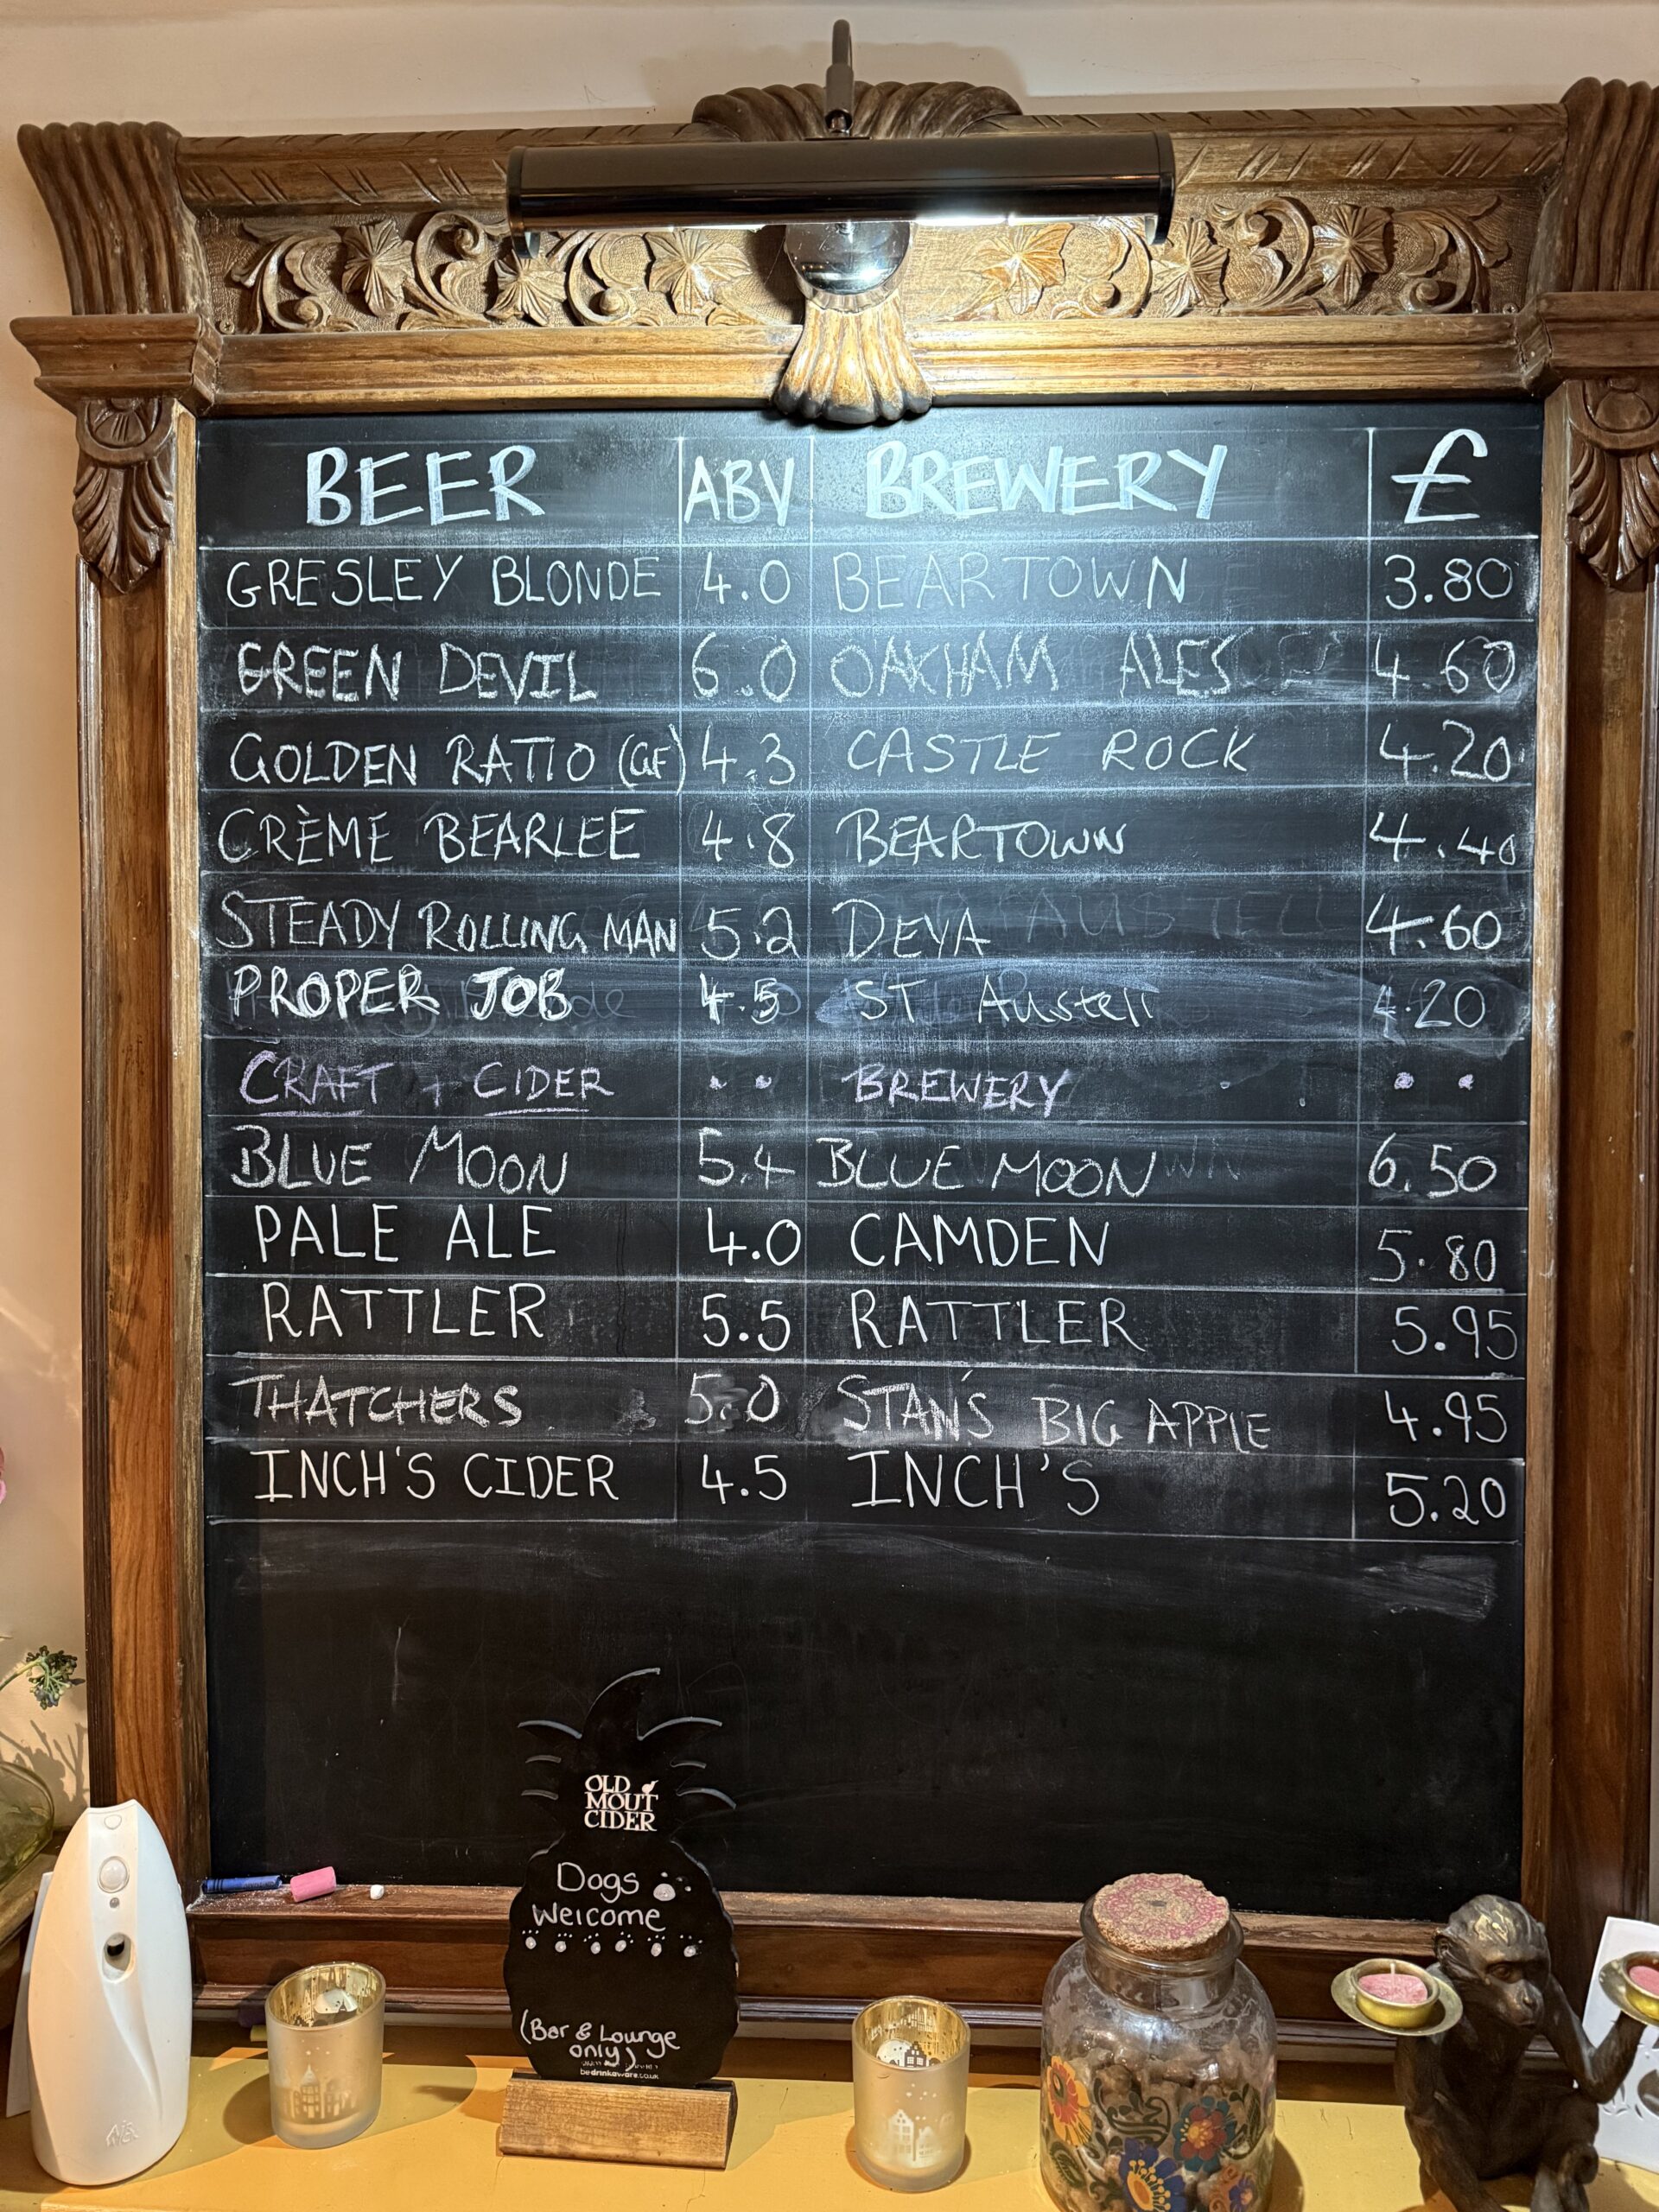 BEER ABV BREWERY £
GRESLEY BLONDE 4.0 BEARTOWN 3.80
GREEN DEVIL 6.0 OAKHAM ALES 4.60
GOLDEN RATIO (GF) 4.3 CASTLE ROCK 4.20
CRÈME BEARLEE 4.8 BEARTOWN 4.40
STEADY ROLLING MAN 5.2 DEYA 4.60
PROPER JOB 4.5 ST Austell 4.20
CRAFT + CIDER .. BREWERY ..
BLUE MOON 5.4 BLUE MOON 6.50
PALE ALE 4.0 CAMDEN 5.80
RATTLER 5.5 RATTLER 5.95
THATCHERS 5.0 STAN'S BIG APPLE 4.95
INCH'S CIDER 4.5 INCH'S 5.20
OLD
MOUT
CIDER
Dogs
Welcome
(Bar & Lounge
only)
bedrinkaware.co.uk